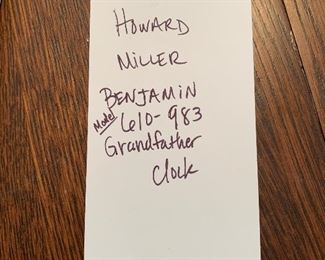 HOWARD
MILLER
BENJAMIN
Model 610-983
Grandfather
Clock